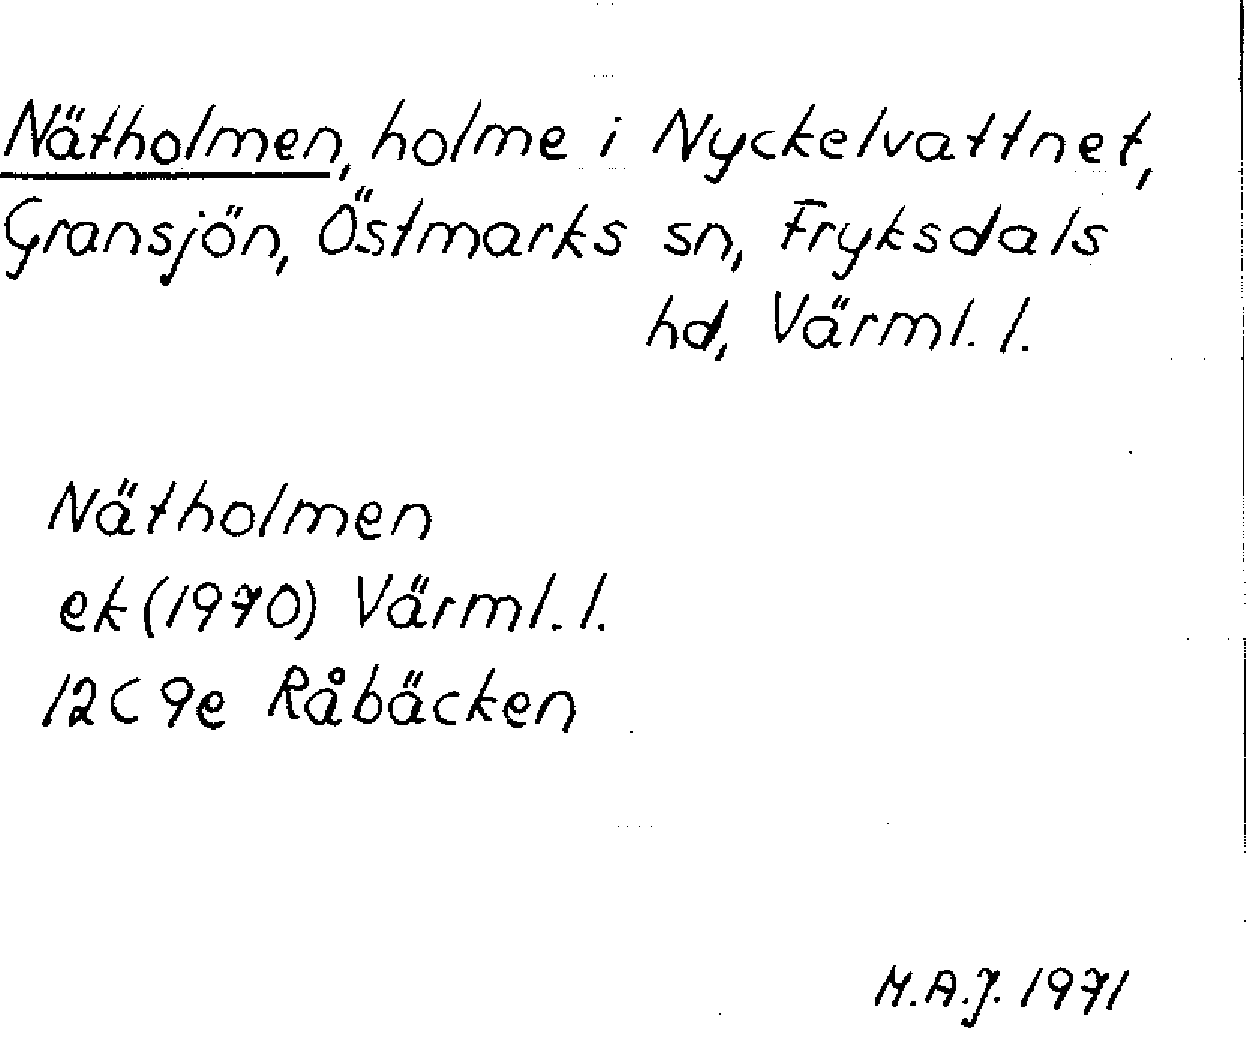 Nätholmen, holme i Nyckelvattnet,
Gransjön, Östmarks sn, Fryksdals
hd, Värml. l.
Nätholmen
ek (1970) Värml. l.
12C 9e Råbäcken
M.A.J. 1971